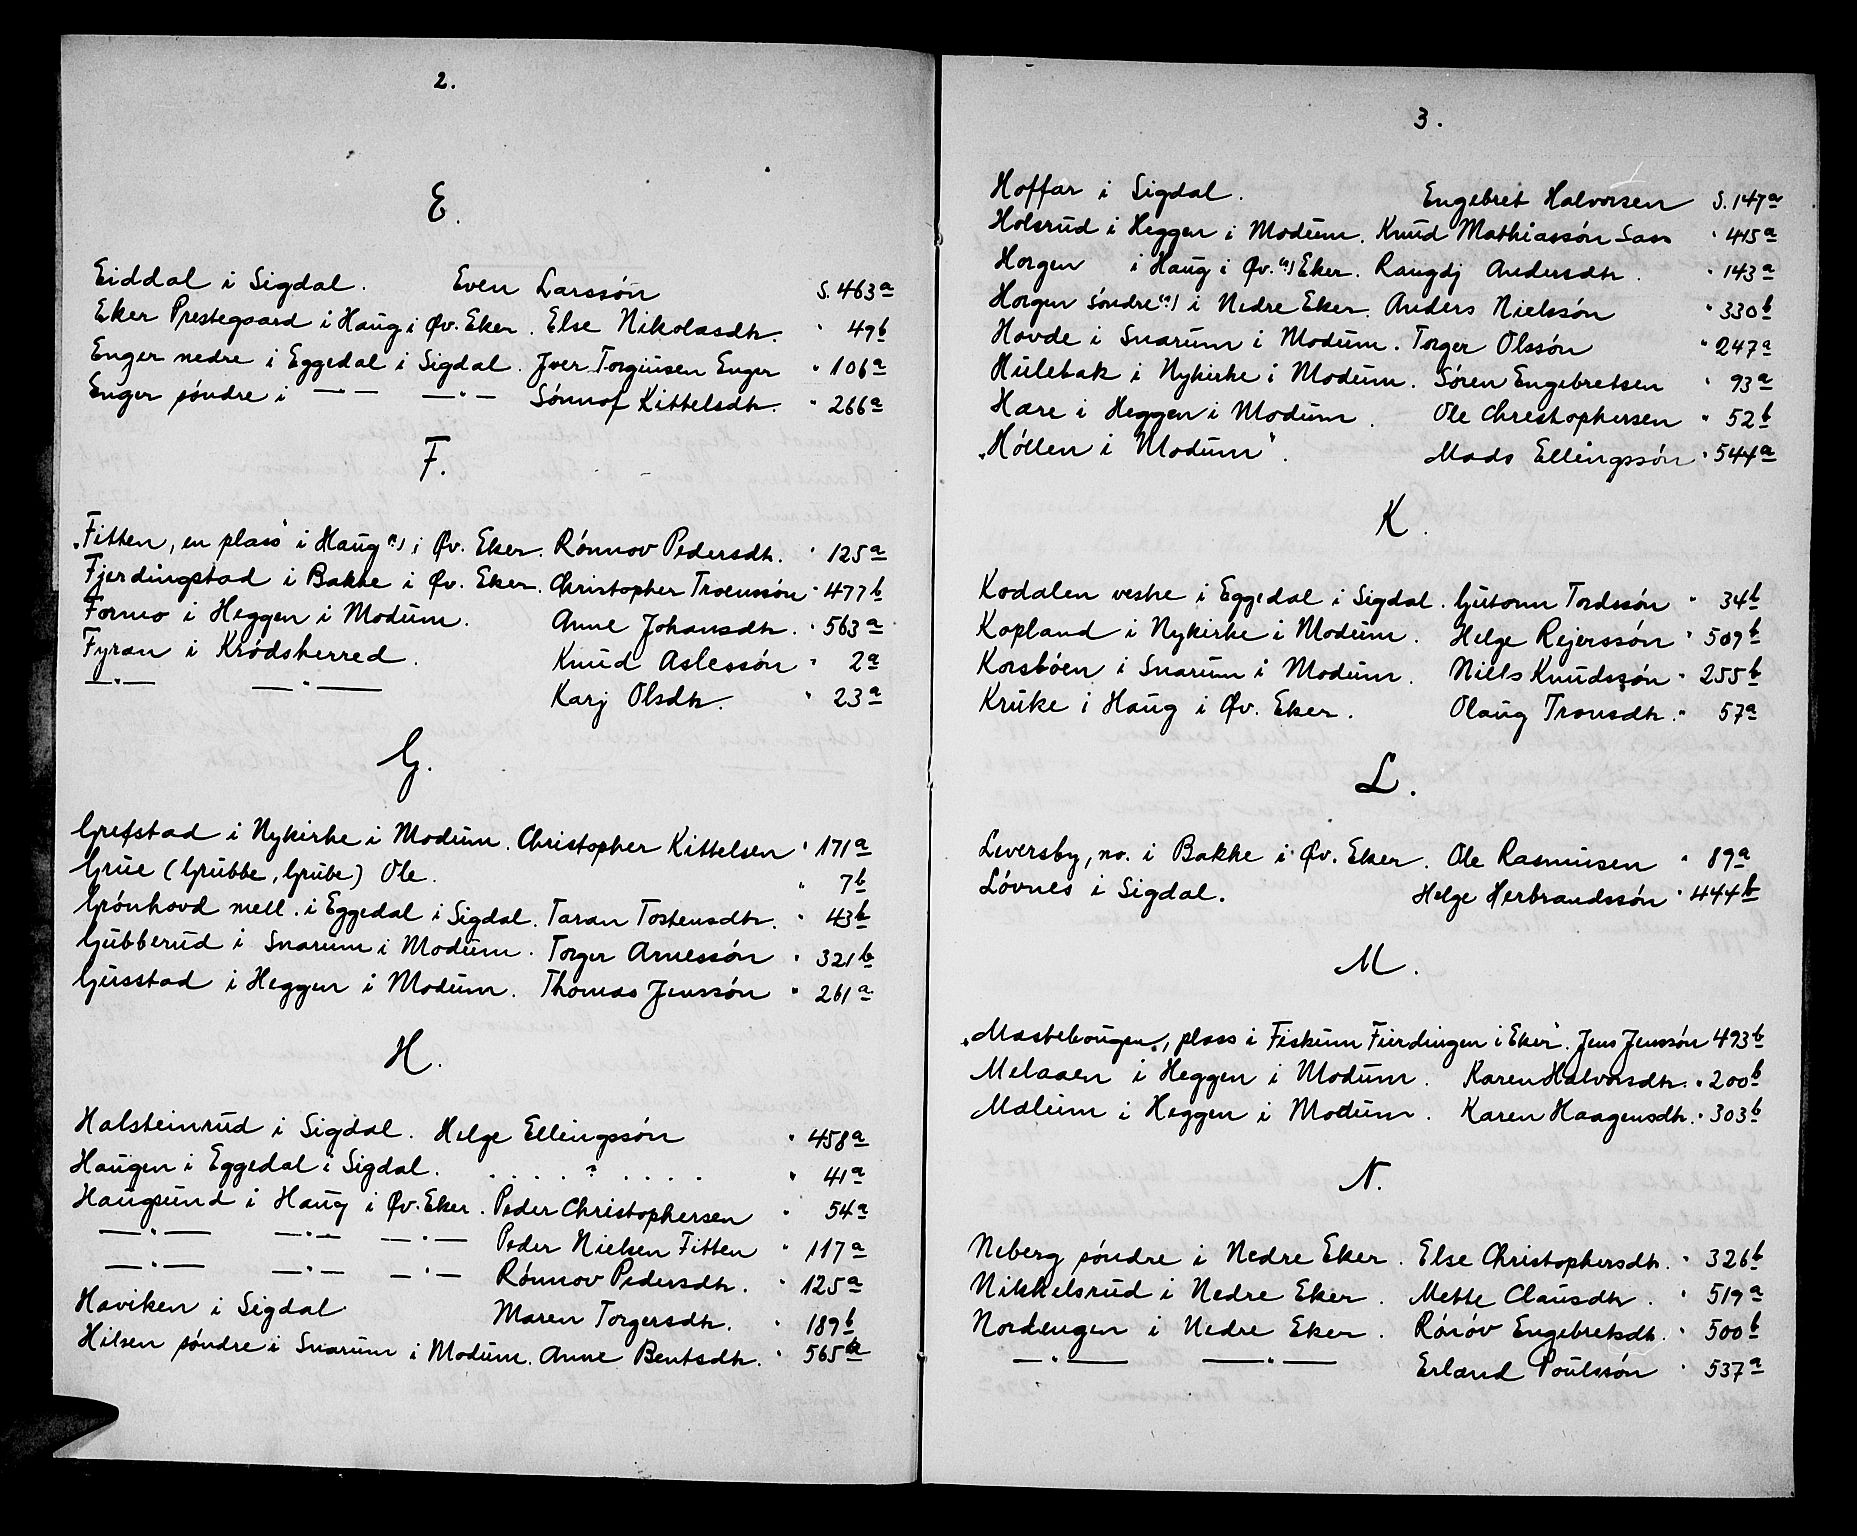 2.
E.
Eiddal i Sigdal. Even Larssón S. 463a
Eker Prestegaard i Haug i Øv. Eker. Else Nikolasdtr. " 49b
Enger nedre i Eggedal i Sigdal. Jver Torgiusen Enger " 106a
Enger søndre i —"— —"— Sønnof Kittelsdtr. " 266a
F.
„Fitten, en plass" i Haug a) i Øv. Eker. Rónnov Pedersdtr. " 125a
Fjerdingstad i Bakke i Øv. Eker. Christopher Troenssón " 477b
Formo i Heggen i Modum. Anne Johansdtr. " 563a
Fyran i Krødsherred. Knud Aslessón " 2a
—"— —"— Karj Olsdtr. " 23a
G.
Grefstad i Nykirke i Modum. Christopher Kittelsen " 171a
Grue (Grubbe, Grube) Ole. " 7b
Grónhovd mell. i Eggedal i Sigdal. Taran Tostensdtr. " 43b
Gubberud i Snarum i Modum. Torger Arnessón " 321b
Gusstad i Heggen i Modum. Thomas Jenssón " 261a
H.
Halsteinrud i Sigdal. Helge Ellingssón " 458a
Haugen i Eggedal i Sigdal. . . . . ? . . . . " 41a
Haugsund i Haug i Øv. Eker. Peder Christophersen " 54a
—"— —"— —"— Peder Nielsen Fitten " 117a
—"— —"— —"— Rónnov Pedersdtr. " 125a
Haviken i Sigdal Maren Torgersdtr. " 189b
Hilsen søndre i Snarum i Modum. Anne Bentsdtr. " 565a
3.
Hoffar i Sigdal. Engebret Halvorsen S. 147a
Holsrud i Heggen i Modum. Knud Mathiassón Sass " 415a
Horgen i Haug i Øv. a) Eker. Rangdj Andersdtr. " 143a
Horgen sóndre a) i Nedre Eker. Anders Nielssón " 330b
Hovde i Snarum i Modum. Torger Olssón " 247a
Hulebak i Nykirke i Modum. Sóren Engebretsen " 93a
Hære i Heggen i Modum. Ole Christophersen " 52b
„Hóllen i Modum". Mads Ellingssón " 544a
K.
Kodalen vestre i Eggedal i Sigdal. Gutorm Tordssón " 34b
Kopland i Nykirke i Modum. Helge Rejerssón " 509b
Korsbóen i Snarum i Modum. Niels Knudssón " 255b
Kruke i Haug i Øv. Eker. Olaug Tronsdtr. " 57a
L.
Leversby, no. i Bakke i Øv. Eker. Ole Rasmusen " 89a
Lóvnes i Sigdal. Helge Herbrandssón " 444b
M.
„Mastebougen„, plass i Fiskum Fierdingen i Eker". Jens Jenssón 493b
Melaaen i Heggen i Modum. Karen Halvorsdtr. " 200b
Mælum i Heggen i Modum. Karen Haagensdtr. " 303b
N.
Neberg søndre i Nedre Eker. Else Christophersdtr. " 326b
Nikkelsrud i Nedre Eker. Mette Clausdtr. " 519a
Nordengen i Nedre Eker. Rónóv Engebretsdtr. " 500b
—"— —"— Erland Poulssón " 537a